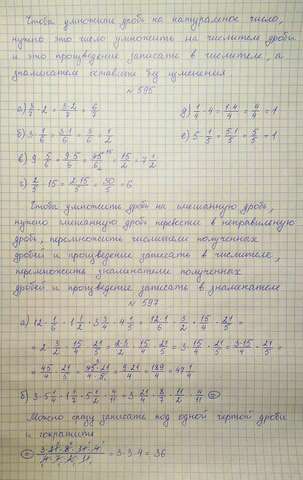 Чтобы умножить дробь на натуральное число,
нужно это число умножить на числитель дроби
и это произведение записать в числителе, а
знаменатель оставить без изменения
№ 595
а) 3/7 · 2 = 3·2/7 = 6/7 д) 1/4 · 4 = 1·4/4 = 4/4 = 1
б) 3 · 1/6 = 3·1/6 = 3/6 = 1/2 е) 5 · 1/5 = 5·1/5 = 5/5 = 1
в) 9 · 5/6 = 9·5/6 = 45 15/6 2 = 15/2 = 7 1/2
г) 2/5 · 15 = 2·15/5 = 30/5 = 6
Чтобы умножить дробь на смешанную дробь,
нужно смешанную дробь перевести в неправильную
дробь, перемножить числители полученных
дробей и произведение записать в числителе,
перемножить знаменатели полученных
дробей и произведение записать в знаменателе
№ 597
а) 12 · 1/6 · 1 1/2 · 3 3/4 · 4 1/5 = 12·1/6 · 3/2 · 15/4 · 21/5 =
= 2 · 3/2 · 15/4 · 21/5 = 2·3/2 · 15/4 · 21/5 = 3 · 15/4 · 21/5 = 3·15/4 · 21/5 =
= 45/4 · 21/5 = 45·21/4·5 = 9·21/4 = 189/4 = 47 1/4
б) 3 · 5 1/4 · 1 1/7 · 5 1/2 · 4/11 = 3 · 21/4 · 8/7 · 11/2 · 4/11 =
Можно сразу записать под одной чертой дроби
и сократить
= 3·21·8·11·4/4·7·2·11 = 3·3·4 = 36